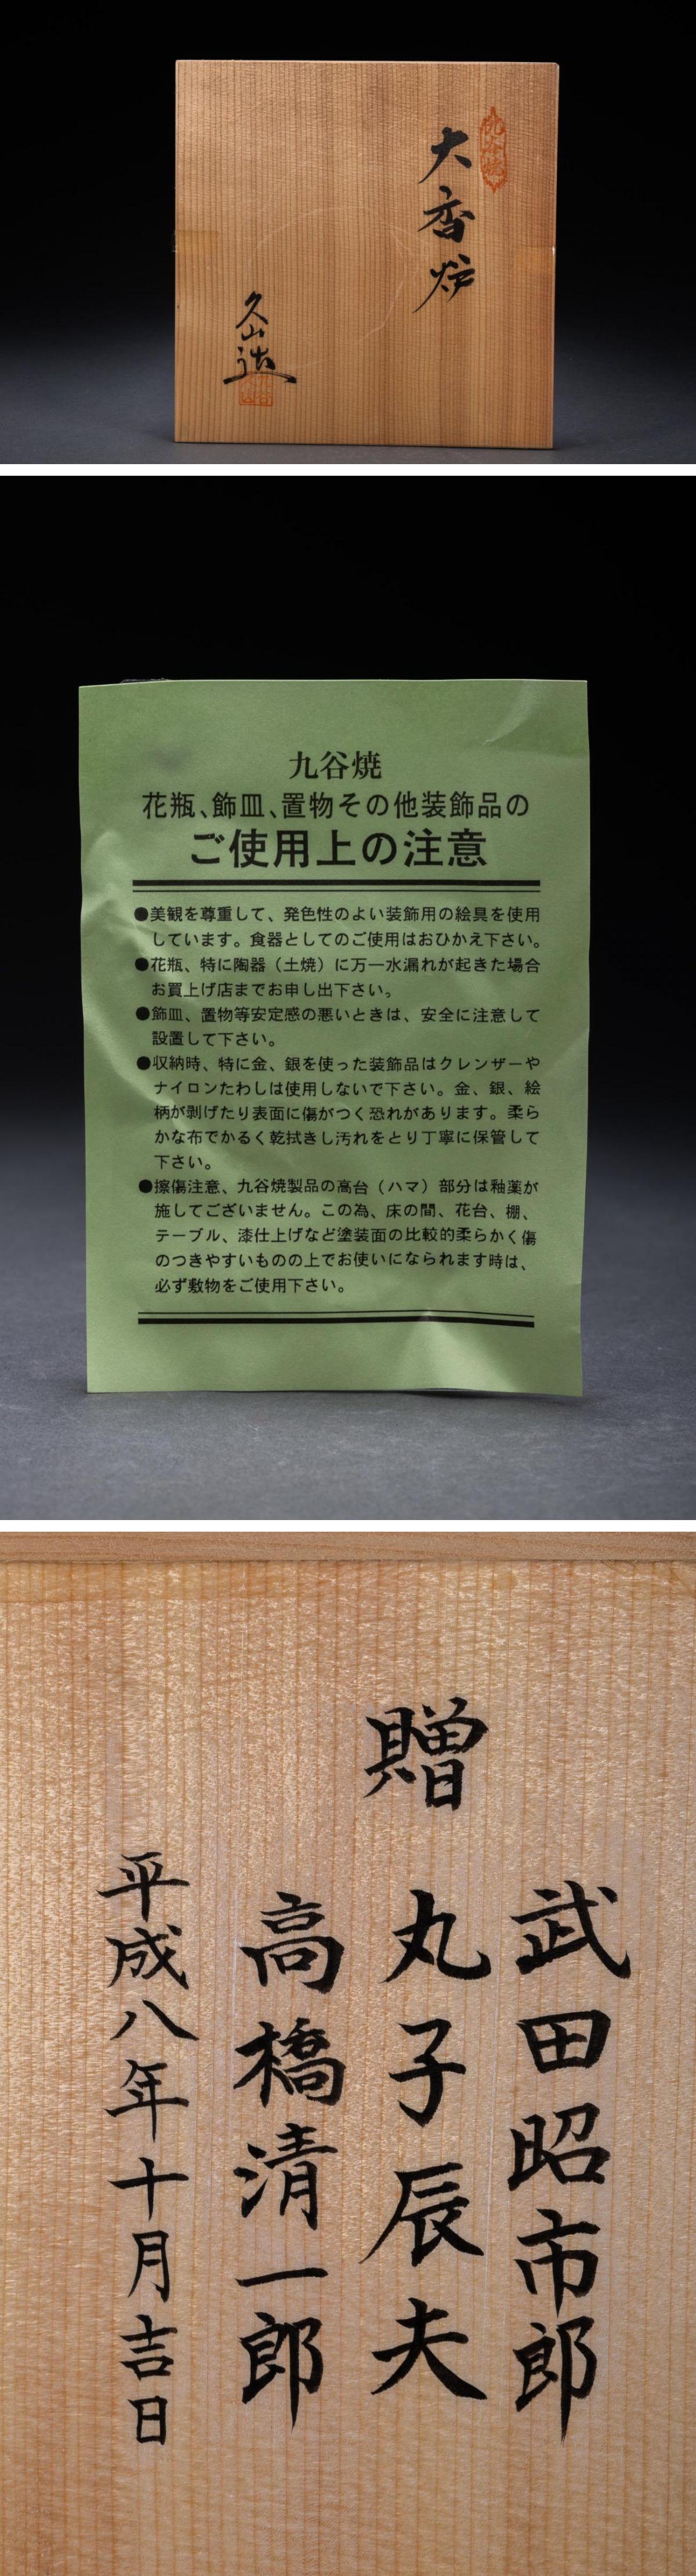 九谷焼
大香炉
久山造
九谷焼
花瓶、飾皿、置物その他装飾品の
ご使用上の注意
●美観を尊重して、発色性のよい装飾用の絵具を使用
しています。食器としてのご使用はおひかえ下さい。
●花瓶、特に陶器（土焼）に万一水漏れが起きた場合
お買上げ店までお申し出下さい。
●飾皿、置物等安定感の悪いときは、安全に注意して
設置して下さい。
●収納時、特に金、銀を使った装飾品はクレンザーや
ナイロンたわしは使用しないで下さい。金、銀、絵
柄が剥げたり表面に傷がつく恐れがあります。柔ら
かな布でかるく乾拭きし汚れをとり丁寧に保管して
下さい。
●擦傷注意、九谷焼製品の高台（ハマ）部分は釉薬が
施してございません。この為、床の間、花台、棚、
テーブル、漆仕上げなど塗装面の比較的柔らかく傷
のつきやすいものの上でお使いになられます時は、
必ず敷物をご使用下さい。
贈
武田昭市郎
丸子辰夫
高橋清一郎
平成八年十月吉日